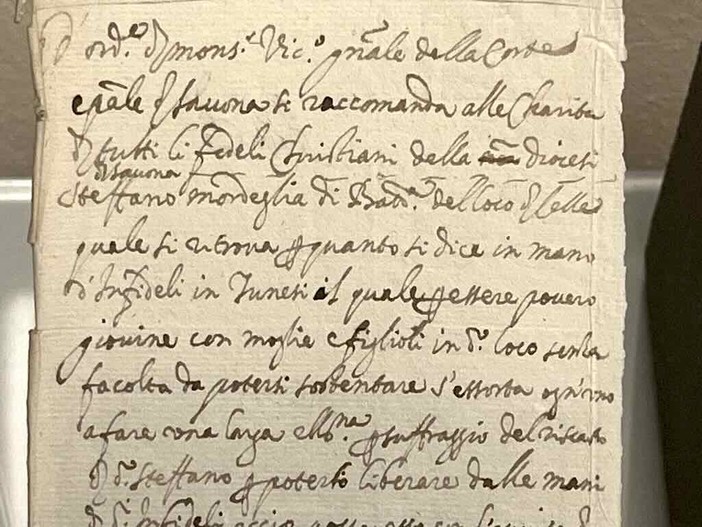 D' ord.e di mons.r Vic.o gnãle della Corte
epãle di Savona si raccomanda alla Charità
di tutti li Fedeli Christiani della diocesi
di Savona
Steffano mordeglia di Batt.a del loco di Celle
quale si ritrova p quanto si dice in mano
d'Infideli in Tunesi il quale p essere povero
giovine con moglie e figlioli in d.o loco senza
facolta da potersi sostentare s'essorta ogn'uno
a fare una larga ellos.na p suffraggio del riscato
di d.o Steffano p poterlo liberare dalle mani
di d.i Infideli accio